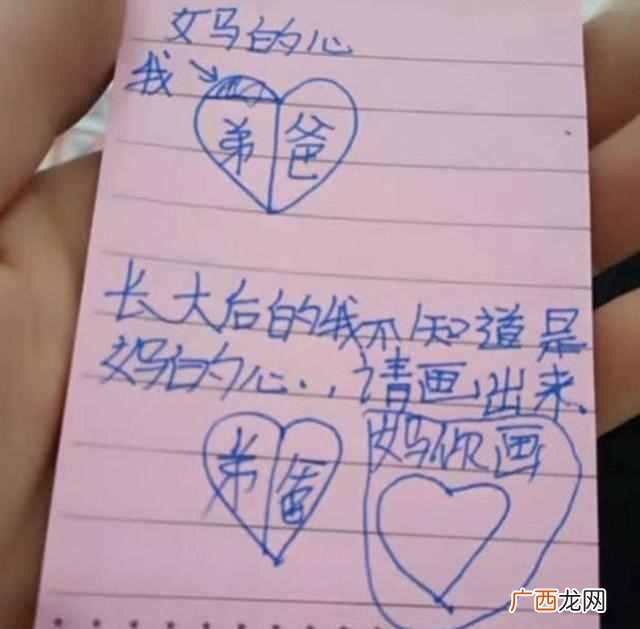 妈的心
我
弟 爸
长大后的我不知道是
妈的心..,请画出来.
弟 爸
妈你画
广西龙网